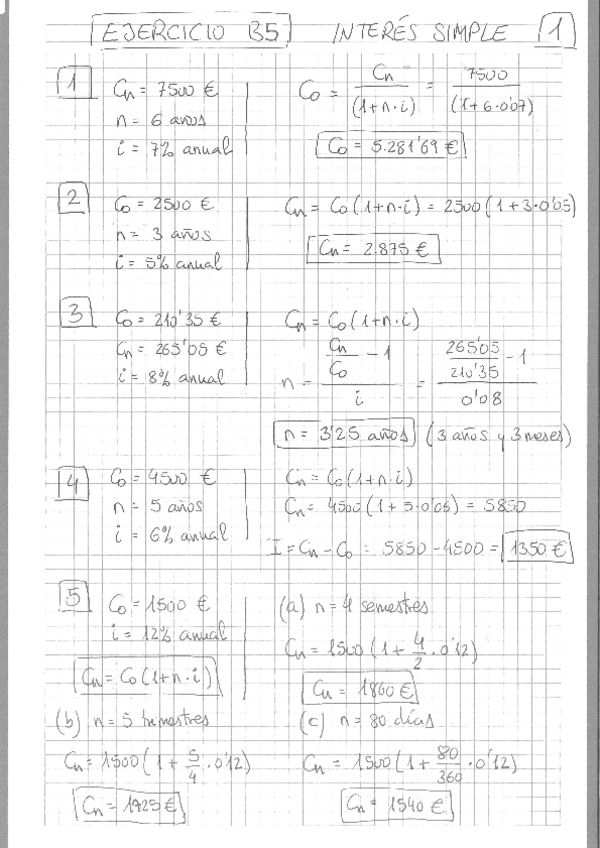 EJERCICIO B5 INTERÉS SIMPLE 1
1
Cn = 7500 €
n = 6 años
i = 7% anual
Co = Cn / (1+n·i) = 7500 / (1+6·0'07)
Co = 5.281'69 €
2
Co = 2500 €
n = 3 años
i = 5% anual
Cn = Co(1+n·i) = 2500(1+3·0'05)
Cn = 2.875 €
3
Co = 210'35 €
Cn = 265'05 €
i = 8% anual
Cn = Co(1+n·i)
n = (Cn/Co - 1) / i = (265'05/210'35 - 1) / 0'08
n = 3'25 años (3 años y 3 meses)
4
Co = 4500 €
n = 5 años
i = 6% anual
Cn = Co(1+n·i)
Cn = 4500(1+5·0'06) = 5850
I = Cn - Co = 5850 - 4500 = 1350 €
5
Co = 1500 €
i = 12% anual
Cn = Co(1+n·i)
(a) n = 4 semestres
Cn = 1500(1+4/2·0'12)
Cn = 1860 €
(b) n = 5 trimestres
Cn = 1500(1+5/4·0'12)
Cn = 1725 €
(c) n = 80 días
Cn = 1500(1+80/360·0'12)
Cn = 1540 €